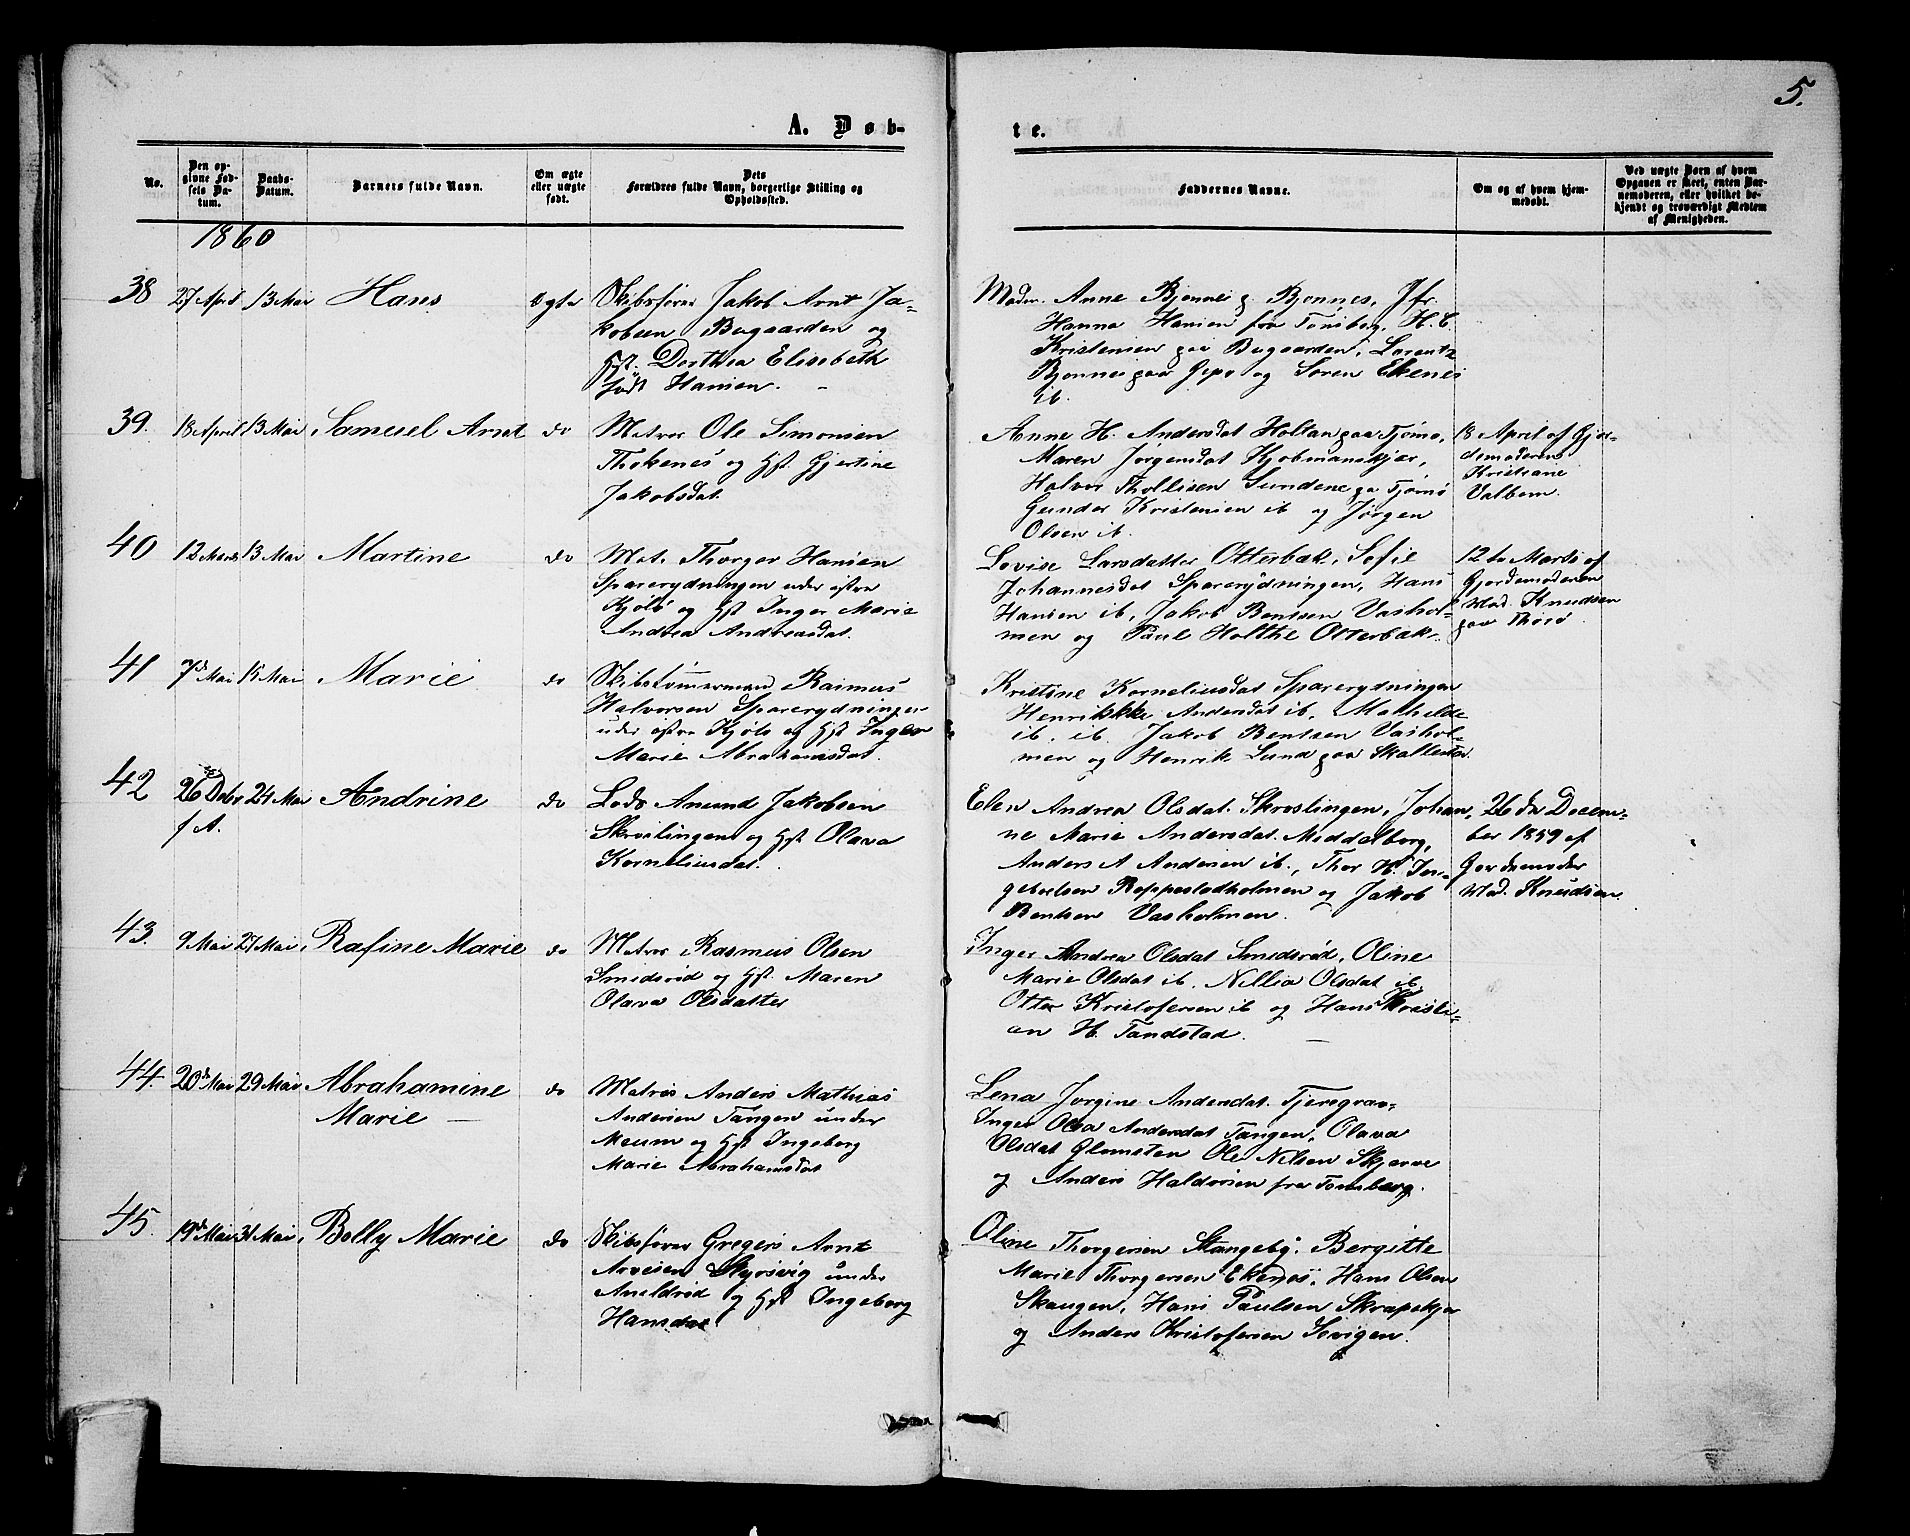 5.
A. Døb-
te.
No.
Den op-
givne Fød-
sels Da-
tum.
Daabs-
Datum.
Barnets fulde Navn.
Om ægte
eller uægte
født.
Dets
Forældres fulde Navn, borgerlige Stilling og
Opholdssted.
Faddernes Navne.
Om og af hvem hjem-
medøbt.
Ved uægte Børn af hvem
Opgaven er skeet, enten Bar-
nemoderen, eller hvilket be-
kjendt og troværdigt Medlem
af Menigheden.
1860
38 27 April 13 Mai Hans ægte Skibsfører Jakob Arnt Ja-
kobsen Bugaarden og
Hst. Dorthea Elisebeth
født Hansen.
Moder. Anne Bjønnes p. Bjønnes, Jfr.
Hanna Hansen fra Tønsberg, H. C.
Kristensen paa Bugaarden, Lorentz
Bjønnes paa Gipø og Søren Ekenes
ib.
39. 18 April 13 Mai Samuel Arnt do Matros Ole Simonsen
Thokenes og Hst. Gjertine
Jakobsdat.
Anne H. Andersdat Holtan paa Tjømø,
Maren Jørgensdat Kjøbmanskjær,
Halvor Thollisen Sundene pa Tjømø
Gunder Kristensen ib og Jørgen
Olsen ib.
18 April af Gjor-
demoderen
Kristiane
Valbom.
40 12 Marts 13 Mai Martine do Mat. Thorger Hansen
Sparerydningen under østre
Kjølø og Hst Inger Marie
Andrea Andreasdat.
Lovise Larsdatter Otterbæk, Sofie
Johannesdat Sparerydningen, Hans
Hansen ib, Jakob Bentsen Vashol-
men og Paul Holthe Otterbæk.
12te Marts af
Gjordemoderen
Mad. Knudsen
paa Thorsø.
41 7de Mai 15 Mai Marie do Skibstømmermand Rasmus
Halvorsen Sparerydningen
under østre Kjølø og Hst Inger
Marie Abrahamsdat.
Kristine Korneliusdat Sparerydningen
Henrikkke Andersdat ib, Mathilde
ib. ib. Jakob Bentsen Vashol-
men og Henrik Lund paa Skallestø.
42 26de Debr 24 Mai Andrine do Lods Anund Jakobsen
f A.
Skrøslingen og Hst Olava
Korneliusdat.
Elen Andrea Olsdat. Skrøslingen, Johan-
ne Marie Andersdat. Middelborg,
Anders A Andersen ib., Thor H. In-
gebretsen Roppestadholmen og Jakob
Bentsen Vasholmen.
26de Decem-
ber 1859 af
Gjordemoder
Mad. Knudsen.
43. 9 Mai 27 Mai Rafine Marie do Matros Rasmus Olsen
Smidsrød og Hst. Maren
Olava Olsdatter
Inger Andrea Olsdat Smidsrød, Oline
Marie Olsdat ib. Nillia Olsdat ib.
Otter Kristofersen ib og Hans Kristi-
an H. Tandstad.
44. 20de Mai 29 Mai Abrahamine do Matros Anders Mathias
Marie
Andersen Tangen under
Meum og Hst Ingeborg
Marie Abrahamsdat
Lena Jørgine Andersdat. Tjeregrav,
Inger Olea Andersdat Tangen, Olava
Olsdat Glomsten Ole Nilsen Skjerve
og Anders Haldorsen fra Tønsberg.
45. 19de Mai 31 Mai Bolly Marie do Skibsfører Gregers Arnt
Arvesen Styrsvig under
Arildrød og Hst Ingeborg
Hansdat.
Oline Thorgersen Stangeby. Bergitte
Marie Thorgersen Ekenes, Hans Olsen
Skaugen, Hans Paulsen Skrapekjær
og Anders Kristofersen Sevigen.